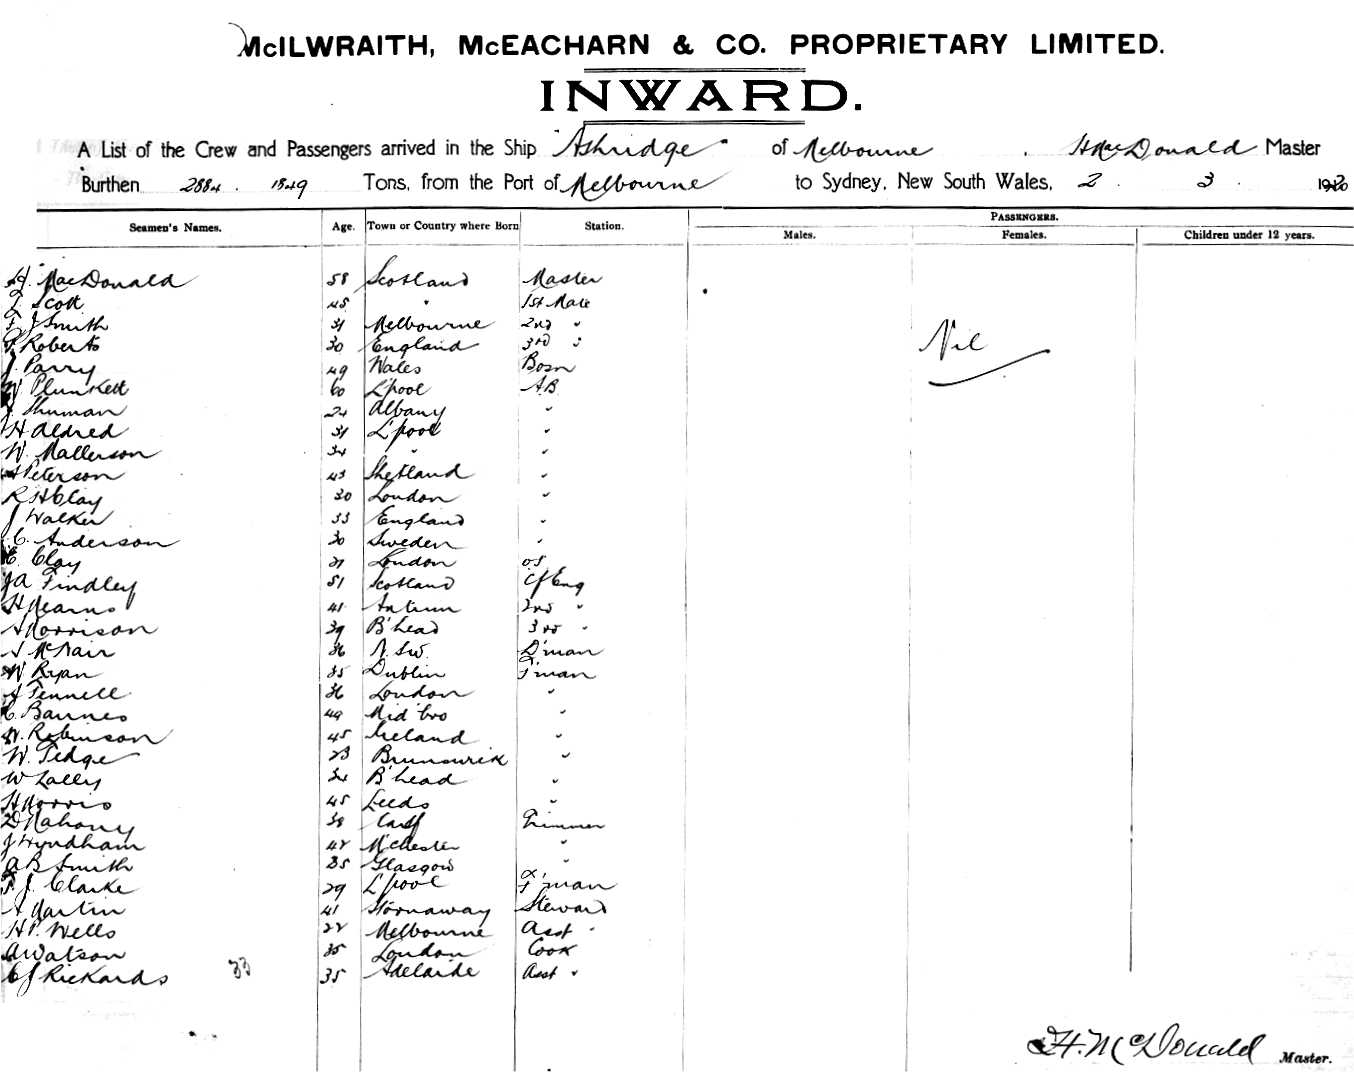 McILWRAITH, McEACHARN & CO. PROPRIETARY LIMITED.
INWARD.
A List of the Crew and Passengers arrived in the Ship "Ashridge" of Melbourne . H MacDonald Master
Burthen 2884 . 1849 Tons, from the Port of Melbourne to Sydney, New South Wales, 2 . 3 . 1920
Seamen's Names. Age. Town or Country where Born Station. PASSENGERS.
Males. Females. Children under 12 years.
H. MacDonald 58 Scotland Master
Scott 45 " 1st Mate
F J Smith 31 Melbourne 2nd "
Roberts 30 England 3rd "
J. Parry 49 Wales Bosn
Nil
W Plunkett 60 L'pool AB
J Shuman 24 Albany "
H Aldred 31 L'pool "
W. Mallerson 34 " "
Peterson 43 Shetland "
R H Clay 30 London "
J Walker 33 England "
C. Anderson 30 Sweden "
E. Clay 21 London OS
J A Findley 51 Scotland Cf Eng
H Mearns 41 Antrim 2nd "
A Morrison 39 B'head 3rd "
McNair 36 N.S.W. D'man
W Ryan 35 Dublin F'man
Fennell 36 London "
C. Barnes 49 Mid'bro "
W. Robinson 45 Ireland "
W. Tedge 23 Brunswick "
W Lally 34 B'head "
H Morris 45 Leeds "
D Mahony 38 Cardf Trimmer
J Wyndham 42 M'chester "
A B Smith 35 Glasgow "
J. Clarke 29 L'pool F'man
A Martin 41 Stornaway Steward
H P. Wells 22 Melbourne Asst "
A Watson 35 London Cook
C J Rickards 33 35 Adelaide Asst "
H. McDonald Master.